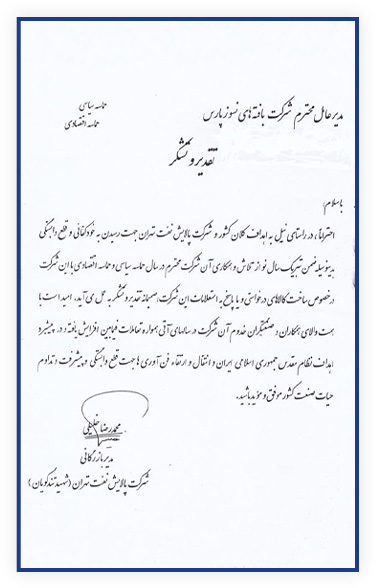 حماسه سیاسی
حماسه اقتصادی
مدیر عامل محترم شرکت بافته های نسوز پارس
تقدیر و تشکر
با سلام؛
احتراماً، در راستای نیل به اهداف کلان کشور و شرکت پالایش نفت تهران جهت رسیدن به خودکفائی و قطع وابستگی
بدینوسیله ضمن تبریک سال نو از تلاش و همکاری آن شرکت محترم در سال حماسه سیاسی و حماسه اقتصادی با این شرکت
درخصوص ساخت کالاهای درخواستی و یا پاسخ به استعلامات این شرکت، صمیمانه تقدیر و تشکر به عمل می آید، امید است با
همت والای همکاران و صنعتگران خدوم آن شرکت در سالهای آتی همواره تعاملات فیمابین افزایش یافته و در پیشبرد
اهداف نظام مقدس جمهوری اسلامی ایران و انتقال و ارتقاء فن آوری ها جهت قطع وابستگی و پیشرفت و تداوم
حیات صنعت کشور موفق و مؤید باشید.
محمدرضا خلیلی
مدیر بازرگانی
شرکت پالایش نفت تهران (شهید تندگویان)